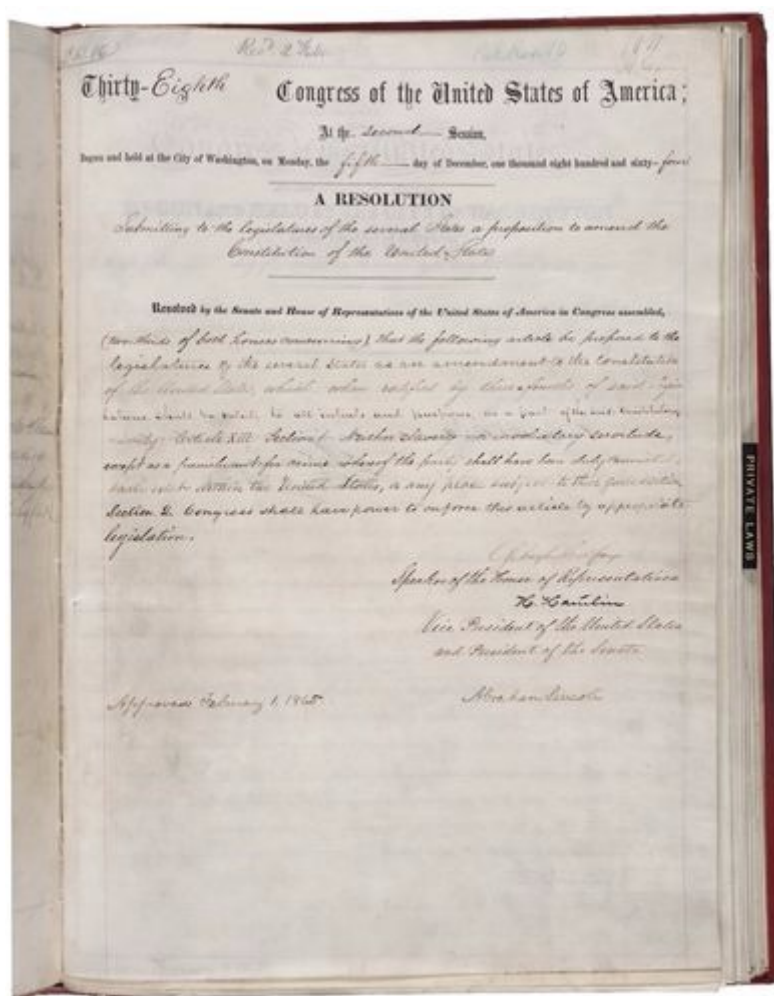 Thirty-Eighth Congress of the United States of America;
At the second Session,
Begun and held at the City of Washington, on Monday, the fifth day of December, one thousand eight hundred and sixty-four
A RESOLUTION
Submitting to the legislatures of the several States a proposition to amend the
Constitution of the United States
Resolved by the Senate and House of Representatives of the United States of America in Congress assembled,
(two-thirds of both houses concurring), that the following article be proposed to the
legislatures of the several States as an amendment to the Constitution
of the United States, which when ratified by three-fourths of said Legis-
latures shall be valid, to all intents and purposes, as a part of the said Constitution,
namely: Article XIII. Section 1. Neither slavery nor involuntary servitude,
except as a punishment for crime whereof the party shall have been duly convicted,
shall exist within the United States, or any place subject to their jurisdiction.
Section 2. Congress shall have power to enforce this article by appropriate
legislation.
Speaker of the House of Representatives
H. Hamlin
Vice President of the United States
and President of the Senate
Approved February 1, 1865. Abraham Lincoln
PRIVATE LAWS